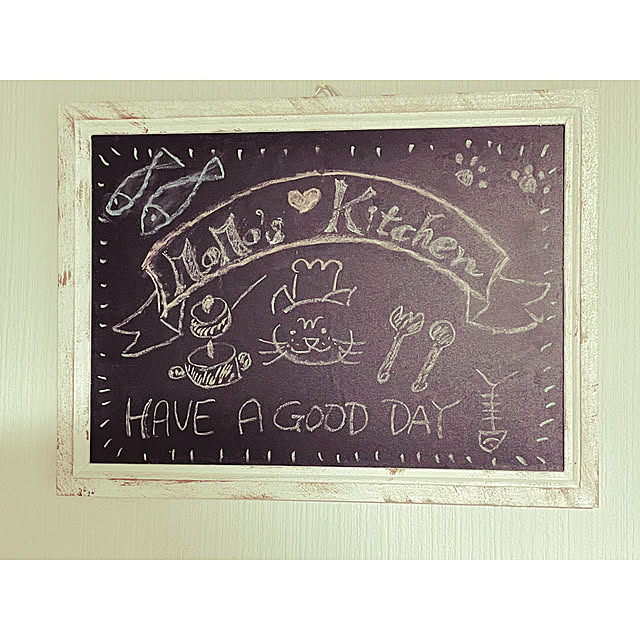 MoMo's Kitchen
HAVE A GOOD DAY